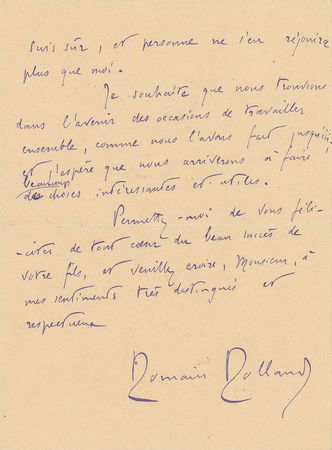 suis sûr, et personne ne s'en réjouira
plus que moi.
Je souhaite que nous trouvions
dans l'avenir des occasions de travailler
ensemble, comme nous l'avons fait jusqu'ici,
et j'espère que nous arriverons à faire
beaucoup
des choses intéressantes et utiles.
Permettez-moi de vous féli-
-citer de tout cœur du beau succès de
votre fils, et veuillez croire, Monsieur, à
mes sentiments très distingués et
respectueux
Romain Rolland